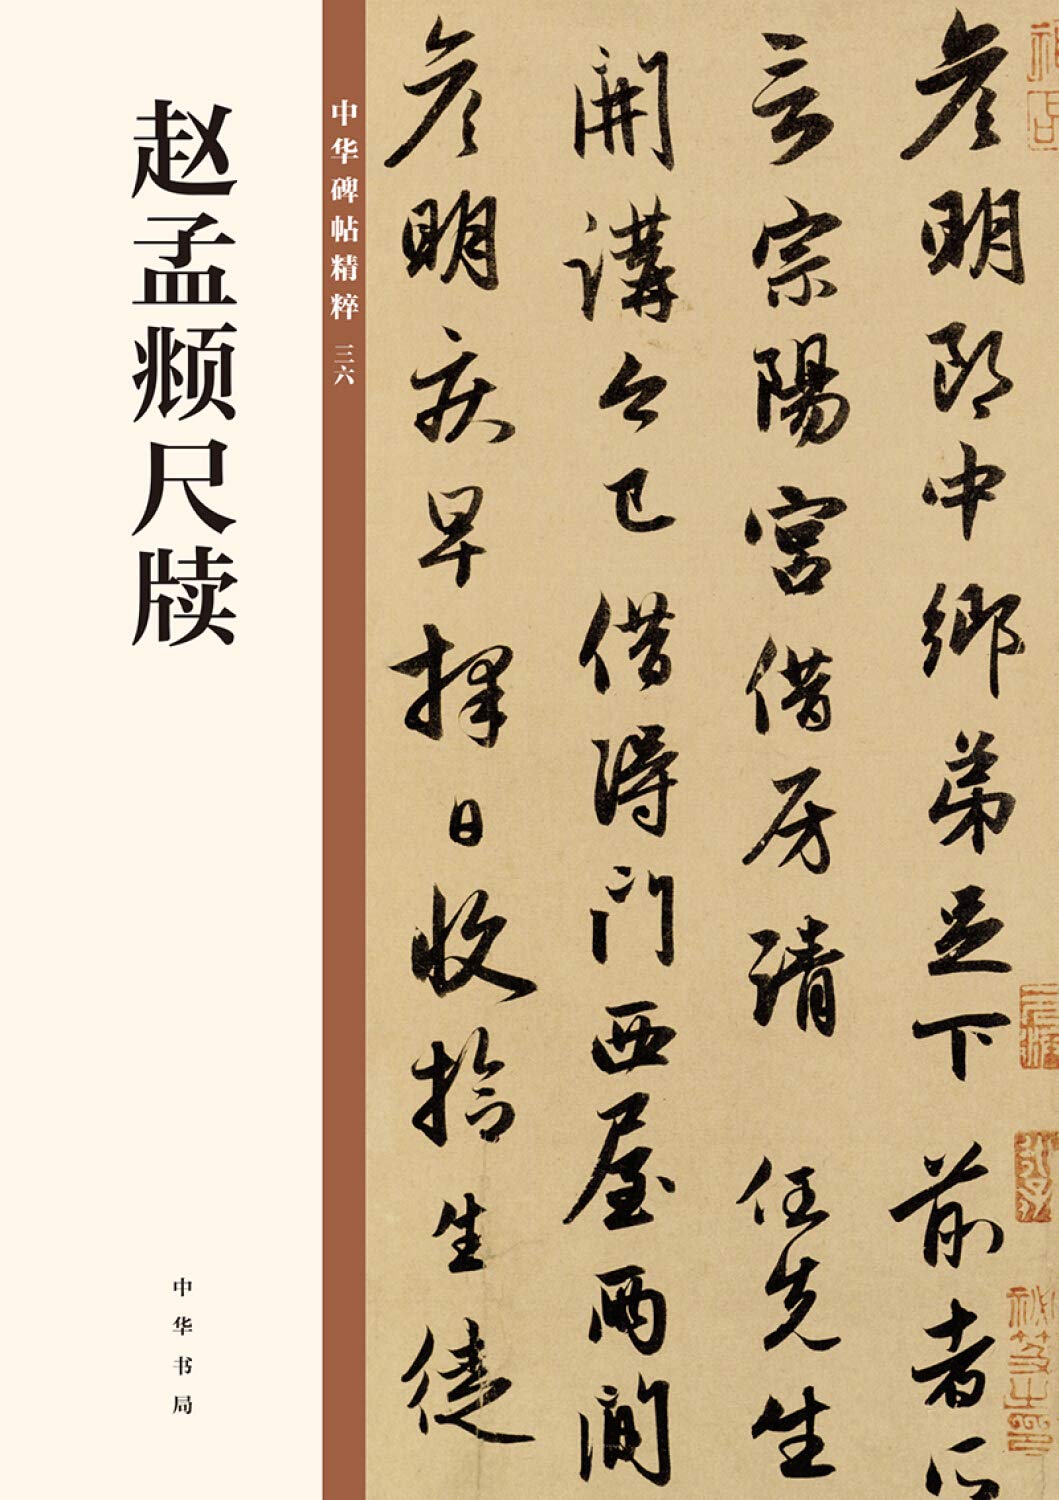 赵孟𫖯尺牍
中华碑帖精粹 三六
彦明郎中鄉弟足下前者所
言宗陽宮借房請 任先生
開講今已借得門西屋兩間
彦明疾早擇日收拾生徒
中华书局